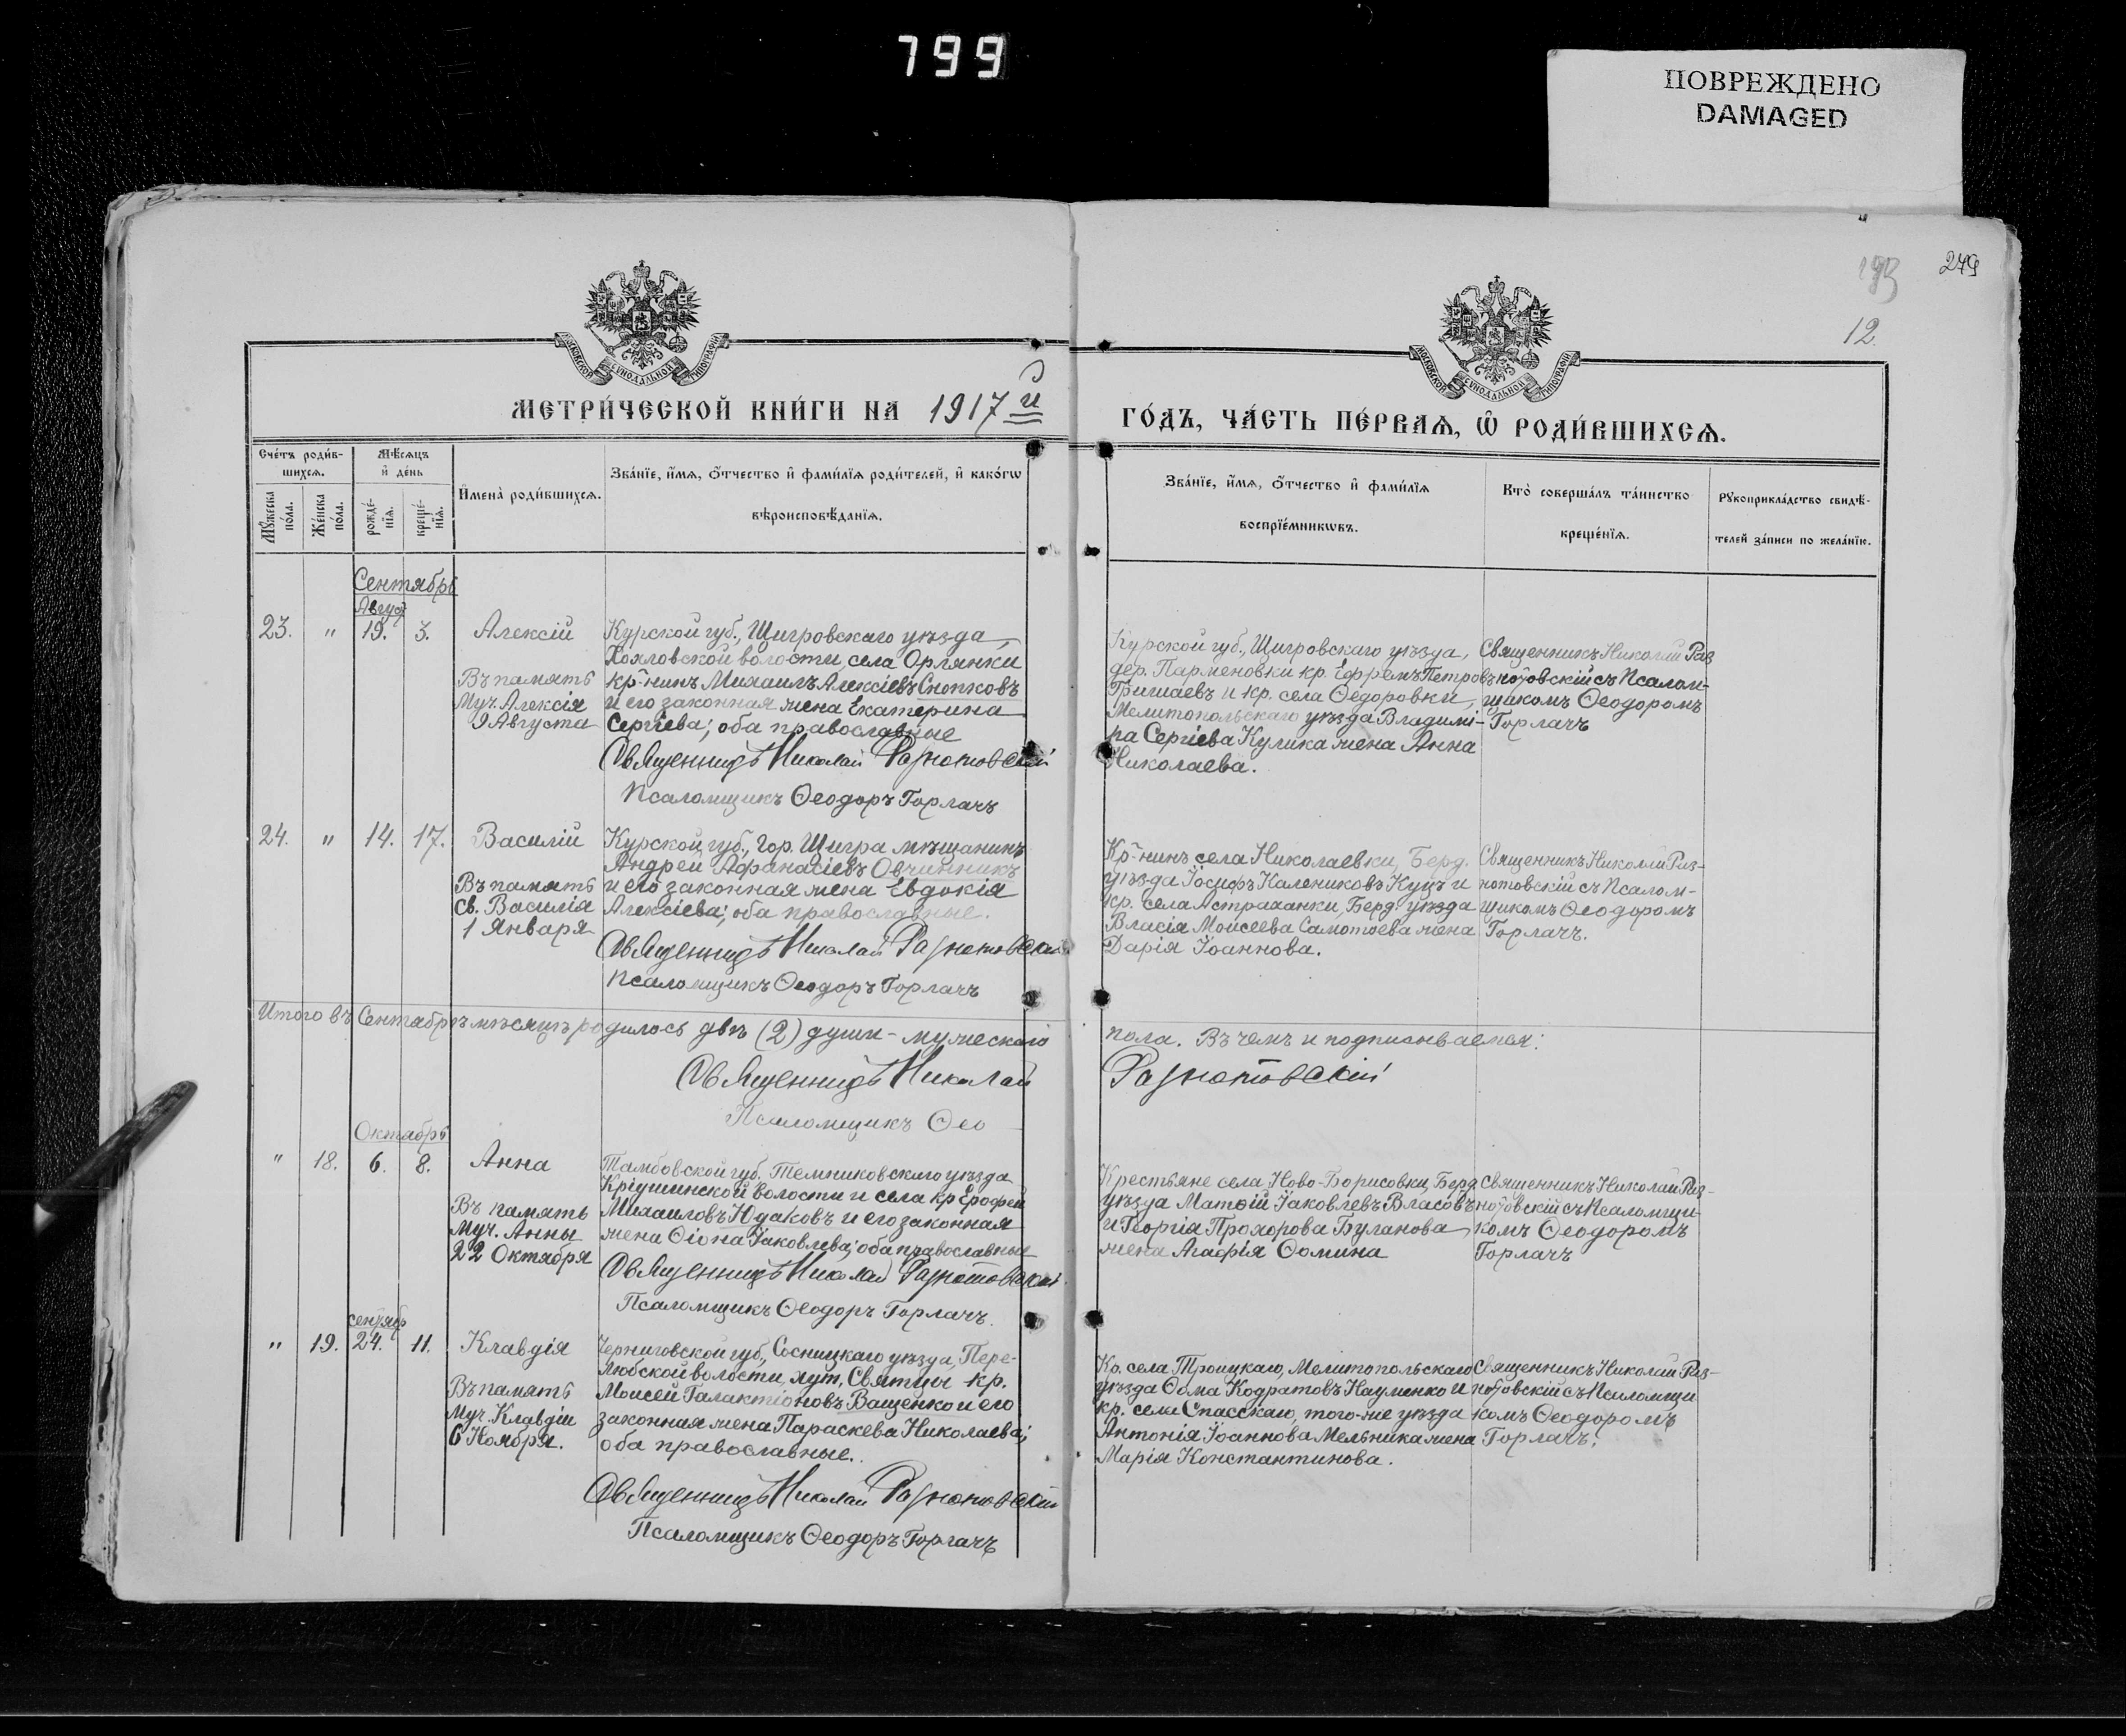 799
ПОВРЕЖДЕНО
DAMAGED
249
12.
МОСКОВСКОЙ СУНОДАЛЬНОЙ ТИПОГРАФІИ
МОСКОВСКОЙ СУНОДАЛЬНОЙ ТИПОГРАФІИ
МЕТРИ́ЧЕСКОЙ КНИ́ГИ НА 1917 й
ГО́ДЪ, ЧА́СТЬ ПЕ́РВАѦ, Ѡ҆ РОДИ́ВШИХСѦ.
Сче́тъ роди́в-
шихсѧ.
Мѣ́сѧцъ
и҆ де́нь
Мꙋ́жеска
по́ла.
Же́нска
по́ла.
рожде́-
нїѧ.
креще́-
нїѧ.
И҆мена̀ роди́вшихсѧ.
Зва́нїе, и҆́мѧ, ѻ҆́тчество и҆ фами́лїѧ роди́телей, и҆ како́гѡ
вѣроисповѣ́данїѧ.
Зва́нїе, и҆́мѧ, ѻ҆́тчество и҆ фами́лїѧ
воспрїе́мникѡвъ.
Кто̀ соверша́лъ та́инство
креще́нїѧ.
Рꙋкоприкла́дство свидѣ́-
телей за́писи по жела́нїю.
Сентябрь
Август
23. " 19. 3. Алексій
Въ память
Муч. Алексія
9 Августа
Курской губ., Щигровскаго уѣзда,
Хохловской волости, села Орлянки
кр-нинъ Михаилъ Алексіевъ Снопковъ
и его законная жена Екатерина
Сергіева; оба православные
Священникъ Николай Разнотовскій
Псаломщикъ Ѳеодоръ Горлачъ
Курской губ., Щигровскаго уѣзда,
дер. Парменовки кр. Ефремъ Петровъ
Гришаевъ и кр. села Ѳедоровки,
Мелитопольскаго уѣзда Владимі-
ра Сергіева Кулика жена Анна
Николаева.
Священникъ Николай Раз
нотовскій съ Псалом-
щикомъ Ѳеодоромъ
Горлачъ
24. " 14. 17. Василій
Въ память
Св. Василія
1 Января
Курской губ., гор. Щигра мѣщанинъ
Андрей Афанасіевъ Овчинникъ
и его законная жена Евдокія
Алексіева; оба православные.
Священникъ Николай Разнотовскій
Псаломщикъ Ѳеодоръ Горлачъ
Кр-нинъ села Николаевки, Берд.
уѣзда Іосифъ Калениковъ Куцъ и
кр. села Астраханки, Берд. уѣзда
Власія Моисеева Самотоева жена
Дарія Іоаннова.
Священникъ Николай Раз-
нотовскій съ Псалом-
щикомъ Ѳеодоромъ
Горлачъ.
Итого въ Сентябрѣ мѣсяцѣ родилось двѣ (2) души - мужескаго
пола. Въ чемъ и подписываемся:
Священникъ Николай
Разнотовскій
Псаломщикъ Ѳео
Октябрь
" 18. 6. 8. Анна
Въ память
Муч. Анны
22 Октября
Тамбовской губ. Темниковскаго уѣзда
Кріушинской волости и села кр Ерофей
Михаиловъ Юдаковъ и его законная
жена Ѳіона Іаковлева; оба православные
Священникъ Николай Разнотовскій
Псаломщикъ Ѳеодоръ Горлачъ.
Крестьяне села Ново-Борисовки, Берд.
уѣзда Матѳій Іаковлевъ Власовъ
и Георгія Прохорова Буланова
жена Агафія Ѳомина
Священникъ Николай Раз-
нотовскій съ Псаломщи-
комъ Ѳеодоромъ
Горлачъ
сентябр
" 19. 24. 11. Клавдія
Въ память
Муч. Клавдіи
6 Ноября.
Черниговской губ., Сосницкаго уѣзда, Пере-
любской волости, хут. Святцы кр.
Моисей Галактіоновъ Ващенко и его
законная жена Параскева Николаева;
оба православные.
Священникъ Николай Разнотовскій
Псаломщикъ Ѳеодоръ Горлачъ
Кр. села Троицкаго, Мелитопольскаго
уѣзда Ѳома Кодратовъ Науменко и
кр. села Спасскаго, того-же уѣзда
Антонія Іоаннова Мельника жена
Марія Константинова.
Священникъ Николай Раз-
нотовскій съ Псаломщи
комъ Ѳеодоромъ
Горлачъ.